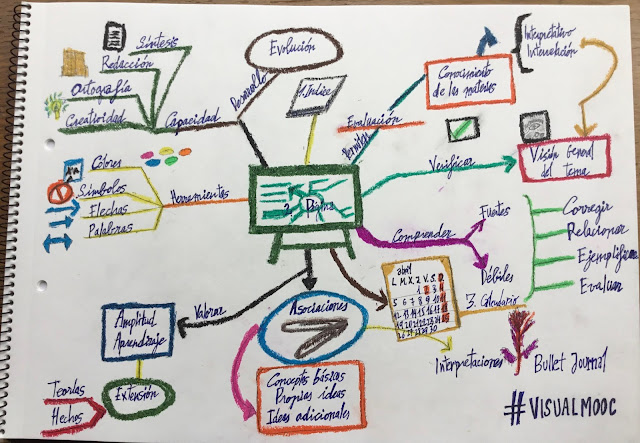 Síntesis
Redacción
Ortografía
Creatividad
Capacidad
Desarrollo
Evolución
1. Índice
Evaluación
Conocimiento
de las materias
Interpretativo
Interrelación
Verificar
Visión General
del tema
Colores
Símbolos
Flechas
Palabras
Herramientas
2.
Comprender
Fuertes
Débiles
Corregir
Relacionar
Ejemplificar
Evaluar
abril
L M X J V S D
3. Calendario
Valorar
Amplitud
Aprendizaje
Extensión
Teorías
Hechos
Asociaciones
Conceptos básicos
Propias ideas
Ideas adicionales
Interpretaciones
Bullet Journal
#VISUALMOOC